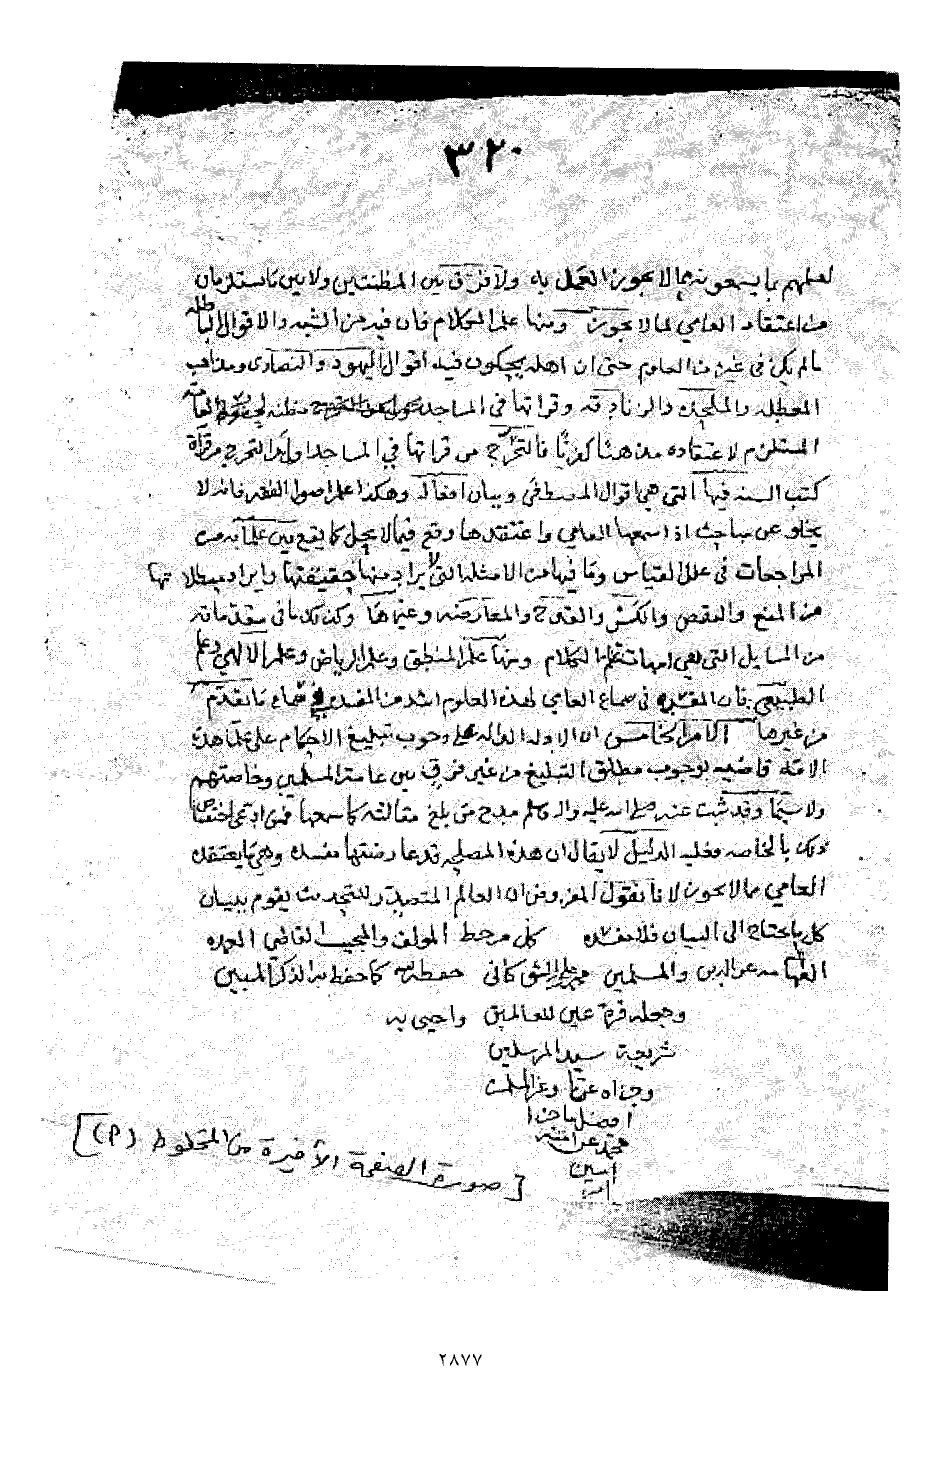 ٣٢٠
لعملهم بما يسمعونه مما لا يجوز العمل به ولا فرق بين المظنتين ولا بين ما يستلزمان
من اعتقاد العامي لما لا يجوز ومنها علم الكلام فان فيه من الشبه والاقوال الباطله
مالم يكن في غيره من العلوم حتى ان اهله يحكون فيه اقوال اليهود والنصارى ومذاهب
المعطله والملحده والزنادقه وقراتها في المساجد مظنه لحضور العامة
المستلزم لاعتقاده مذهبا كفريا فالتحرج من قراتها في المساجد اولى من التحرج من قرآة
كتب السنه فيها التي هي اقوال المصطفى وبيان افعاله وهكذا علم اصول الفقه فانه لا
يخلو عن مباحث اذا سمعها العامي واعتقدها وقع فيما لا يحل كما يقع بين علمائه من
المراجعات في علل القياس وما فيها من الامثله التي لا يراد منها حقيقتها وايراد مبطلاتها
من المنع والنقض والكسر والقدح والمعارضه وغيرها وكذلك ما في مقدماته
من المسايل التي هي امهات علم الكلام ومنها علم المنطق وعلم الرياض وعلم الالهي وعلم
الطبيعي فان المفسده في سماع العامي لهذه العلوم اشد من المفسده في سماع ما تقدم
من غيرها الامر الخامس ان الادله الداله على وجوب تبليغ الاحكام على علما هذه
الامة قاضيه بوجوب مطلق التبليغ من غير فرق بين عامة المسلمين وخاصتهم
ولا سيما وقد ثبت عنه صلى الله عليه واله وسلم مدح من بلغ مقالته كما سمعها فمن ادعى اختصاص
ذلك بالخاصه فعليه الدليل لا يقال ان هذه المصلحه قد عارضتها مفسده وهي ما يعتقده
العامي مما لا يجوز لانا نقول المفروض ان العالم المتصدر للتحديث يقوم ببيان
كل ما يحتاج الى البيان فلا مفسده كمل من خط المولف والمجيب القاضي العمده
العلامه عز الدين والمسلمين محمد بن علي الشوكاني حفظه الله كما حفظ به الذكر المبين
وجعله قرة عين للعالمين واحيى به
شريعة سيد المرسلين
وجزاه عنا وعن المسلمين
افضل ما جزا
امين
امين
[صورة الصفحة الأخيرة من المخطوط (م)]
٢٨٧٧